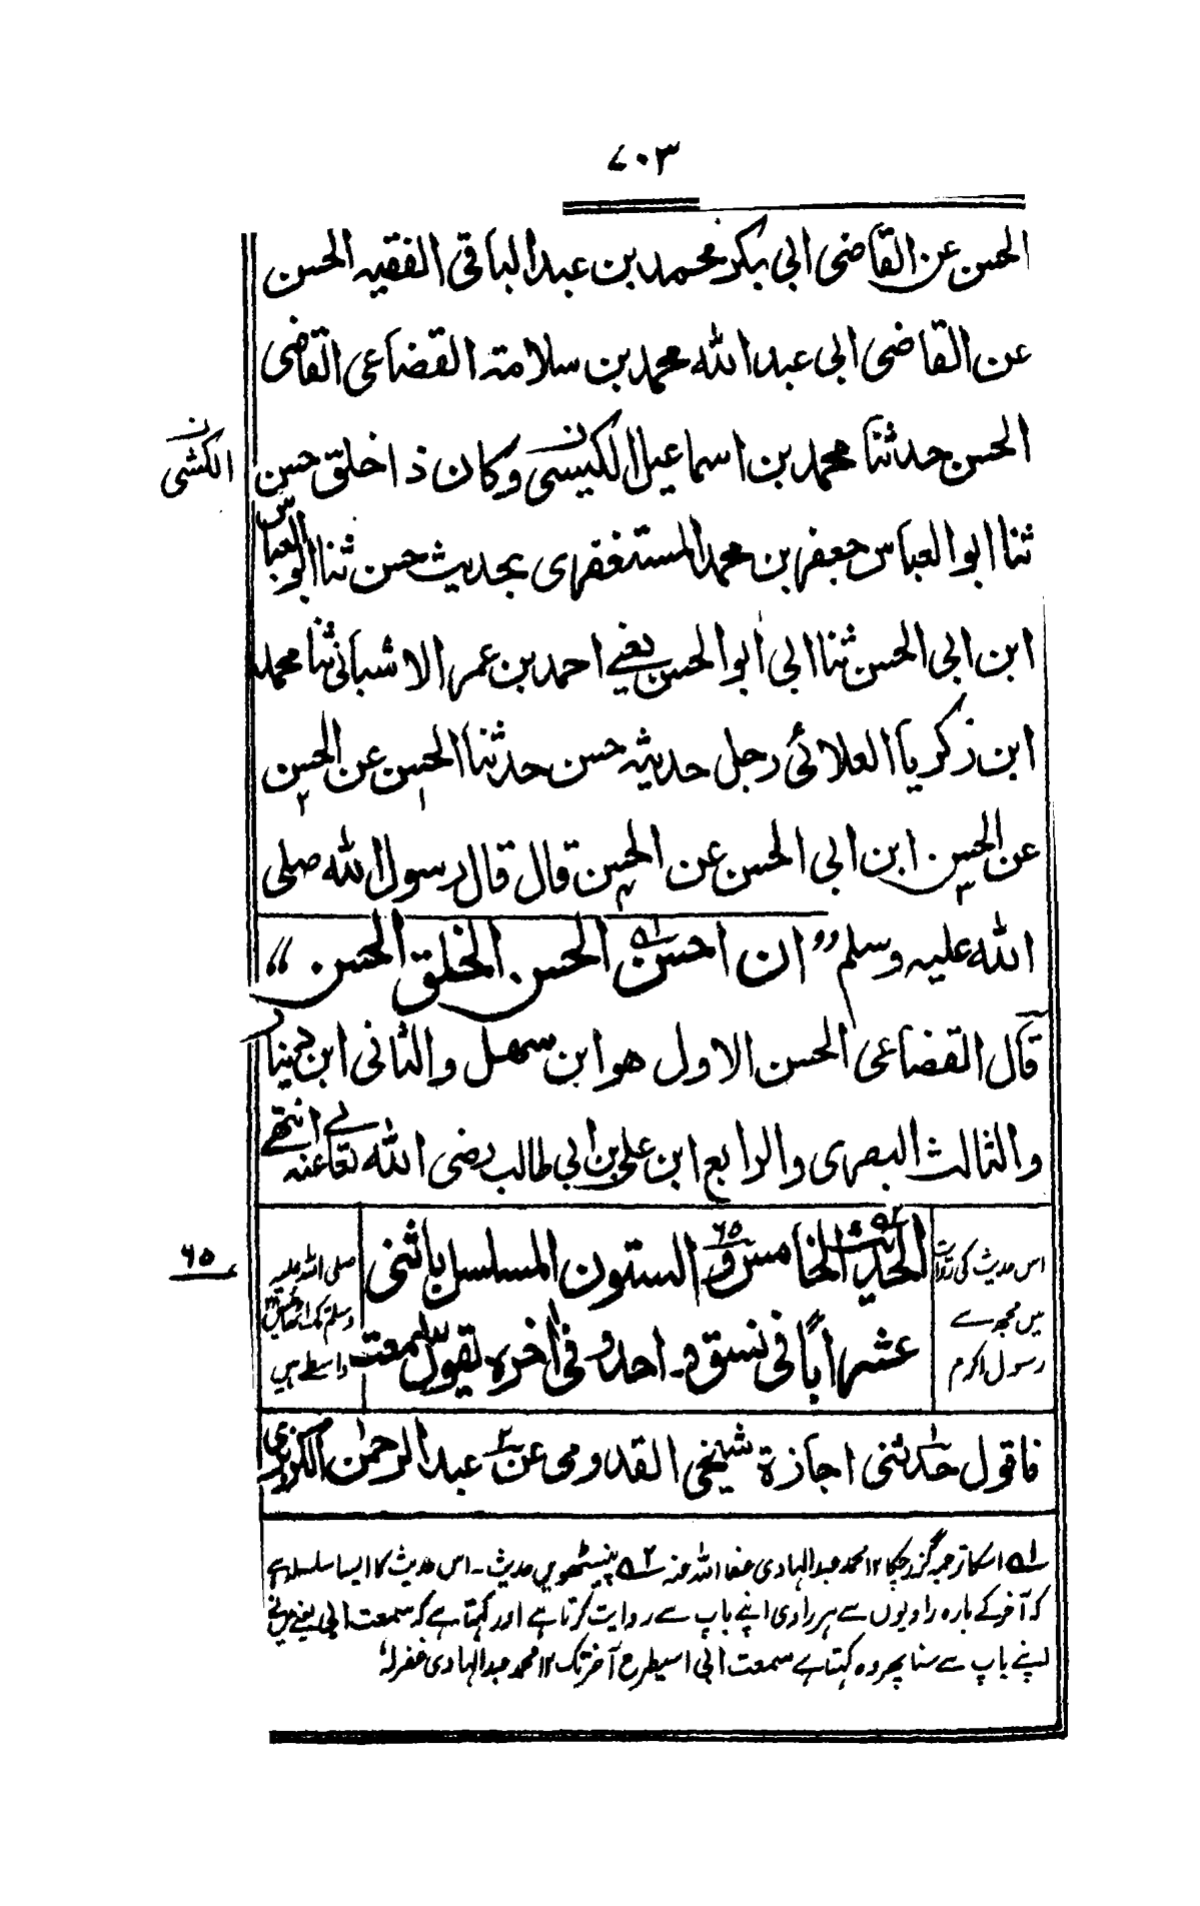 ٧٠٣
الحسن عن القاضی ابی بکر محمد بن عبد الباقی الفقیه الحسن
عن القاضی ابی عبد الله محمد بن سلامة القضاعی القاضی
الحسن حدثنا محمد بن اسماعیل الکیسی ن وکان ذا خلق حسن
الکشی ن
ثنا ابو العباس جعفر بن محمد المستغفری بحدیث حسن ثنا ابو العباس
ابن ابی الحسن ثنا ابی ابو الحسن یعنے احمد بن عمر الاشبانی ثنا محمد
ابن زکریا العلائی رجل حدیثه حسن حدثنا الحسن ١ عن الحسن ٢
عن الحسن ٣ ابن ابی الحسن عن الحسن ٤ قال قال رسول الله صلی
الله علیه وسلم "ان احسن الحسن الخلق الحسن"
قال القضاعی الحسن الاول هو ابن سهل والثانی ابن دینار
والثالث البصری والرابع ابن علی بن ابی طالب رضی الله تعالے عنه انتهے
الحدیث الخامس و الستون المسلسل باثنی
٦٥
عشر اباً فی نسق واحد و فی اخره یقول سمعت
اس حدیث کی روایت
میں مجھ سے
رسول اکرم
صلی اللہ علیہ
وسلم تک
واسطے ہیں
٦٥
فاقول حدثنی اجازة شیخی القدومی عن عبد الرحمن الکزبری
اسکا ترجمہ گزر چکا ١٢ محمد عبد الہادی عفا اللہ عنہ ٢ پینسٹھویں حدیث ۔ اس حدیث کا ایسا سلسلہ ہے
کہ آخر کے بارہ راویوں سے ہر راوی اپنے باپ سے روایت کرتا ہے اور کہتا ہے کہ سمعت ابی یعنے میں نے
اپنے باپ سے سنا پھر وہ کہتا ہے سمعت ابی اسیطرح آخر تک ١٢ محمد عبد الہادی غفرلہ